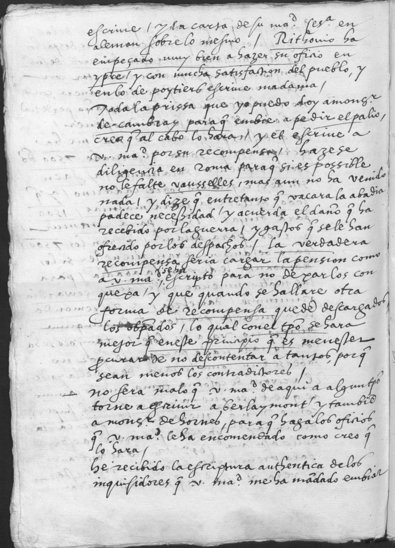 escrive / y la carta de su mag. ces.ª en
aleman sobre lo mesmo / Rithovio ha
empezado muy bien a hazer su ofiçio en
ypre / y con mucha satisfaction del pueblo, y
en lo de poytiers escrive madama /
Toda la prissa que yo puedo doy a monsr
de cambray para q embie a pedir el palio,
creo q al cabo lo hara / y el escrive a
v. ma.d por su recompensa / hazese
diligençia en roma para q si es possible
no le falte vausselles, mas aun no ha venido
nada / y dize q entretanto q vacara la abadia
padeçe neçessidad / y acuerda el daño q ha
recebido por la guerra / y gastos q se le han
ofreçido por los despachos / la verdadera
recompensa seria cargar la pension como
a v. ma.d se ha escripto para no dexarlos con
quexa / y que quando se hallare otra
forma de recompensa quede descargados
los obpados / lo qual con el tpo se hara
mejor q en este prinçipio q es menester
procurar de no descontentar a tantos por q
sean menos los contraditores /
no sera malo q v. ma.d de aqui a algun tpo
torne a escrivir a berlaymont / y tambien
a monsr de hornes, para q haga los ofiçios
q v. ma.d le ha encomendado como creo q
lo hara /
he recibido la escriptura authentica de los
inquisidores q v. ma.d me ha mãdado embiar